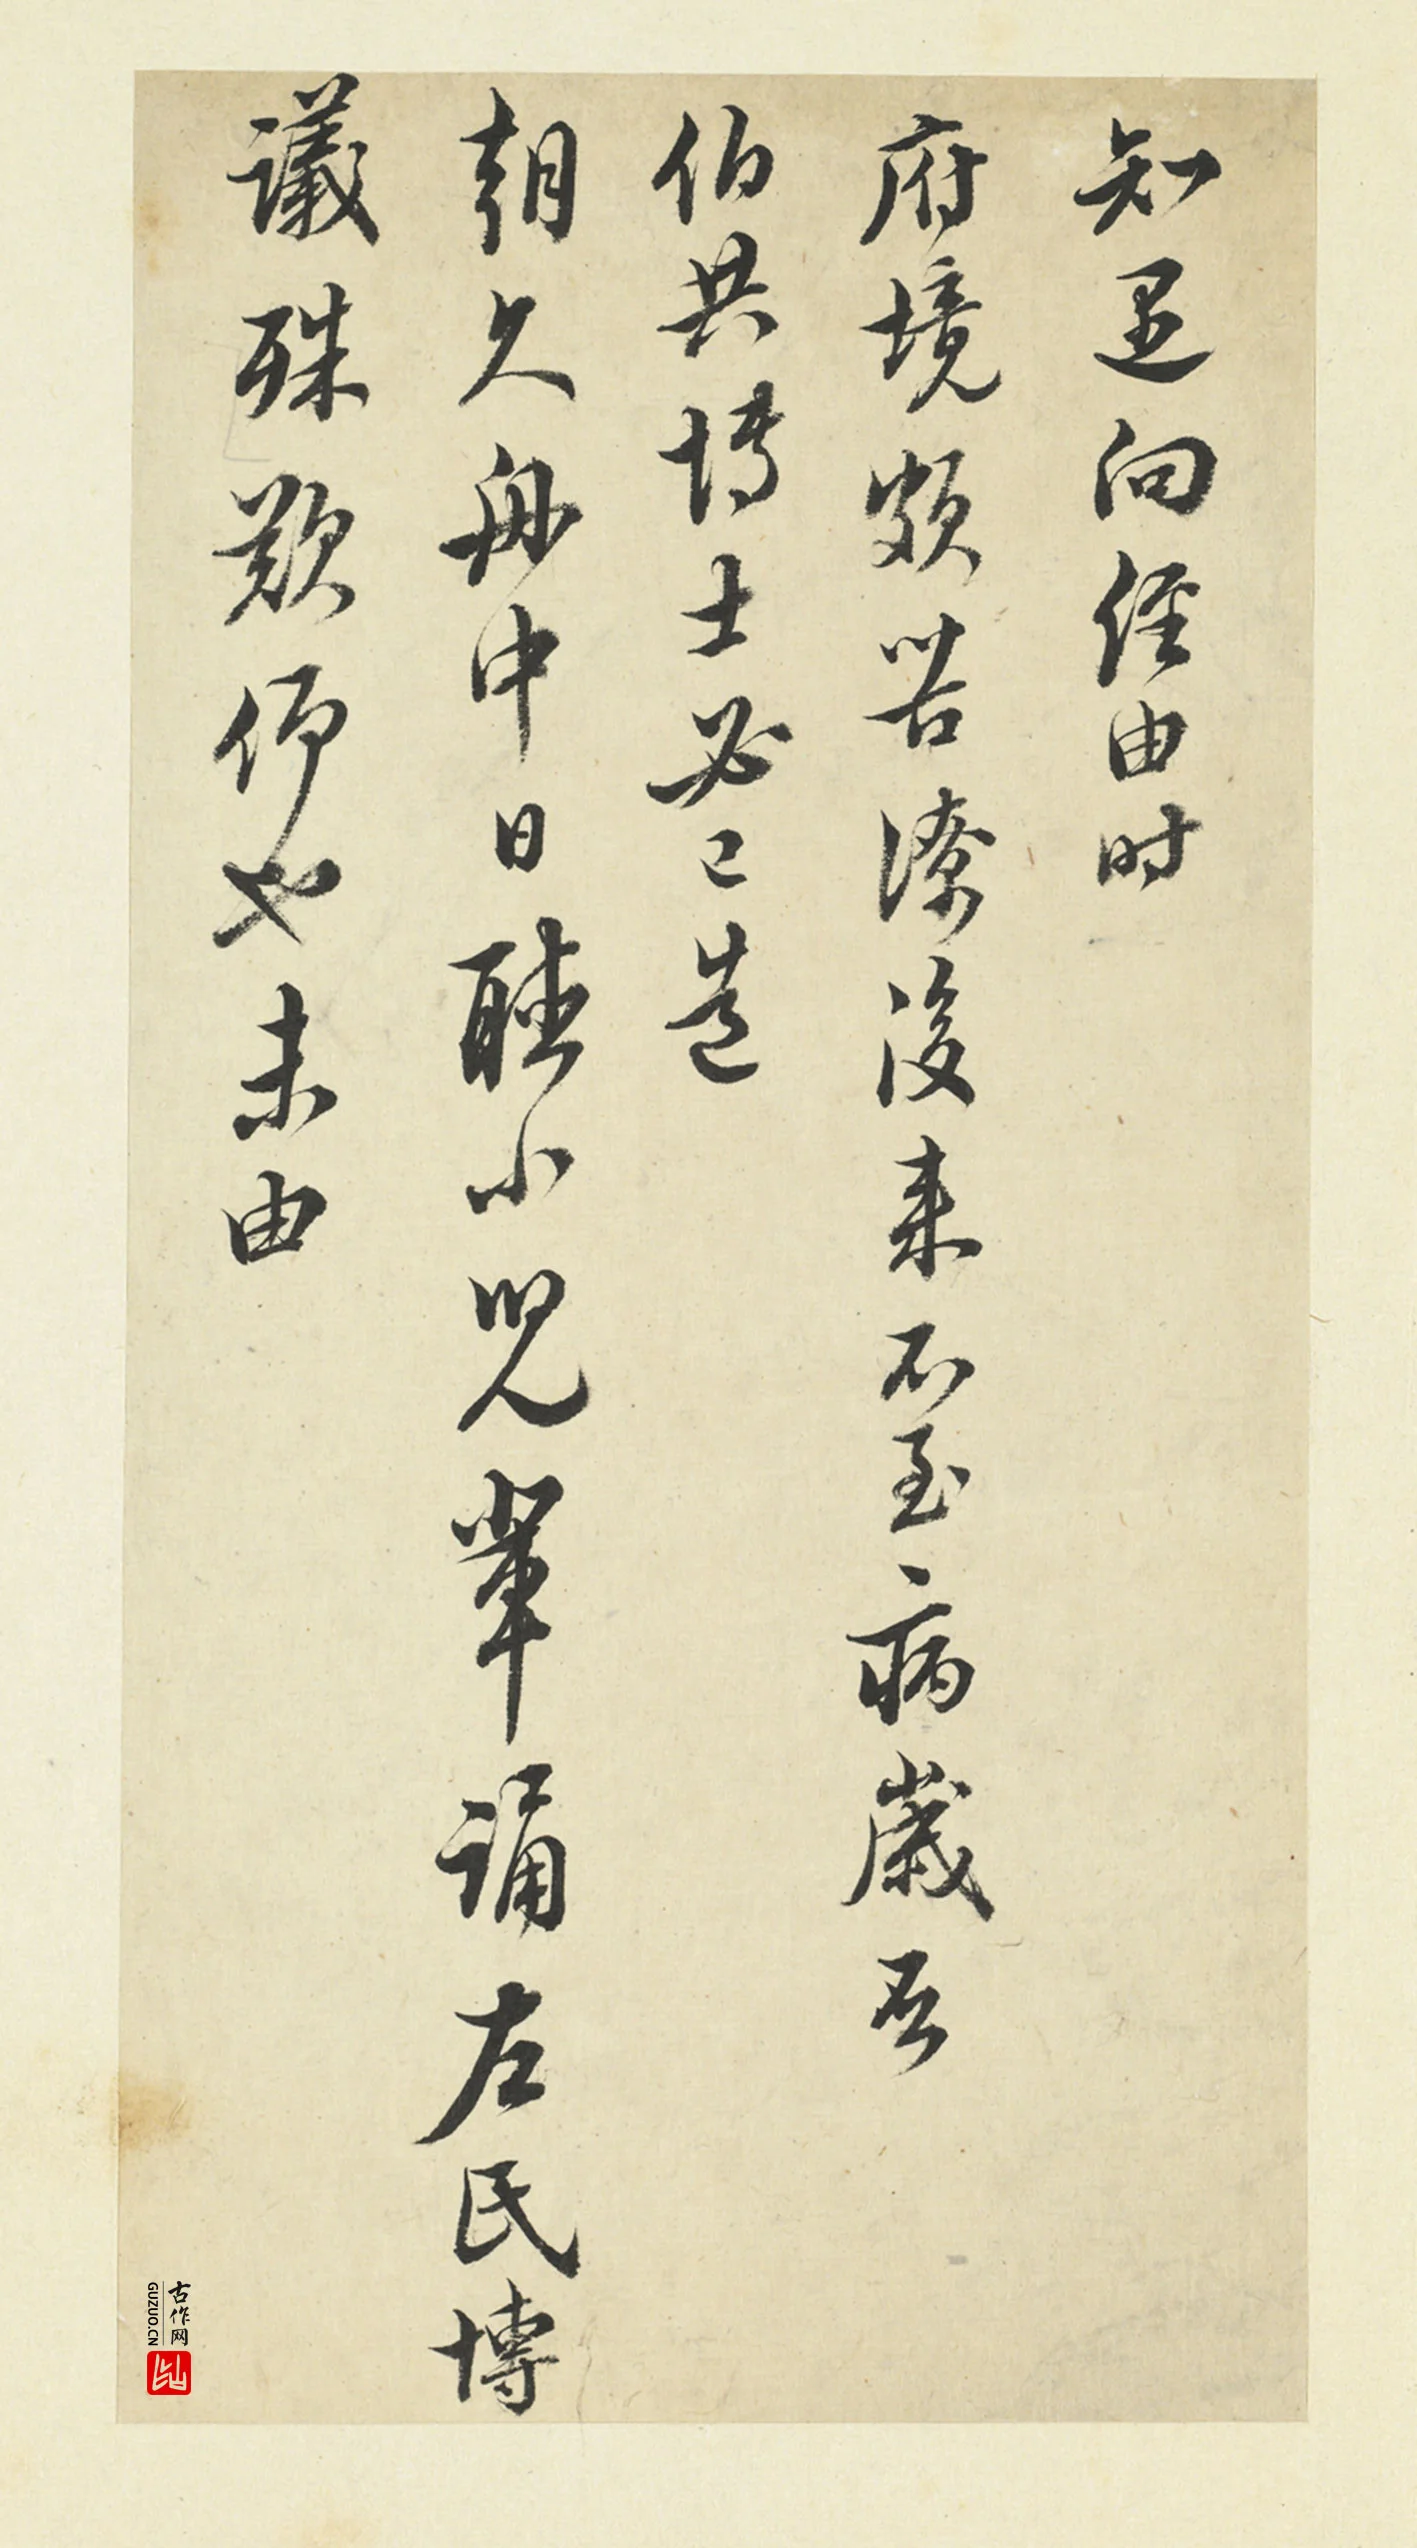 知邑向經由时
府境頗苦潦後来不至病歲否
伯共博士必已造
朝久舟中日聽小兒輩誦左氏博
議殊歎仰也未由
古作网
GUZUO.CN